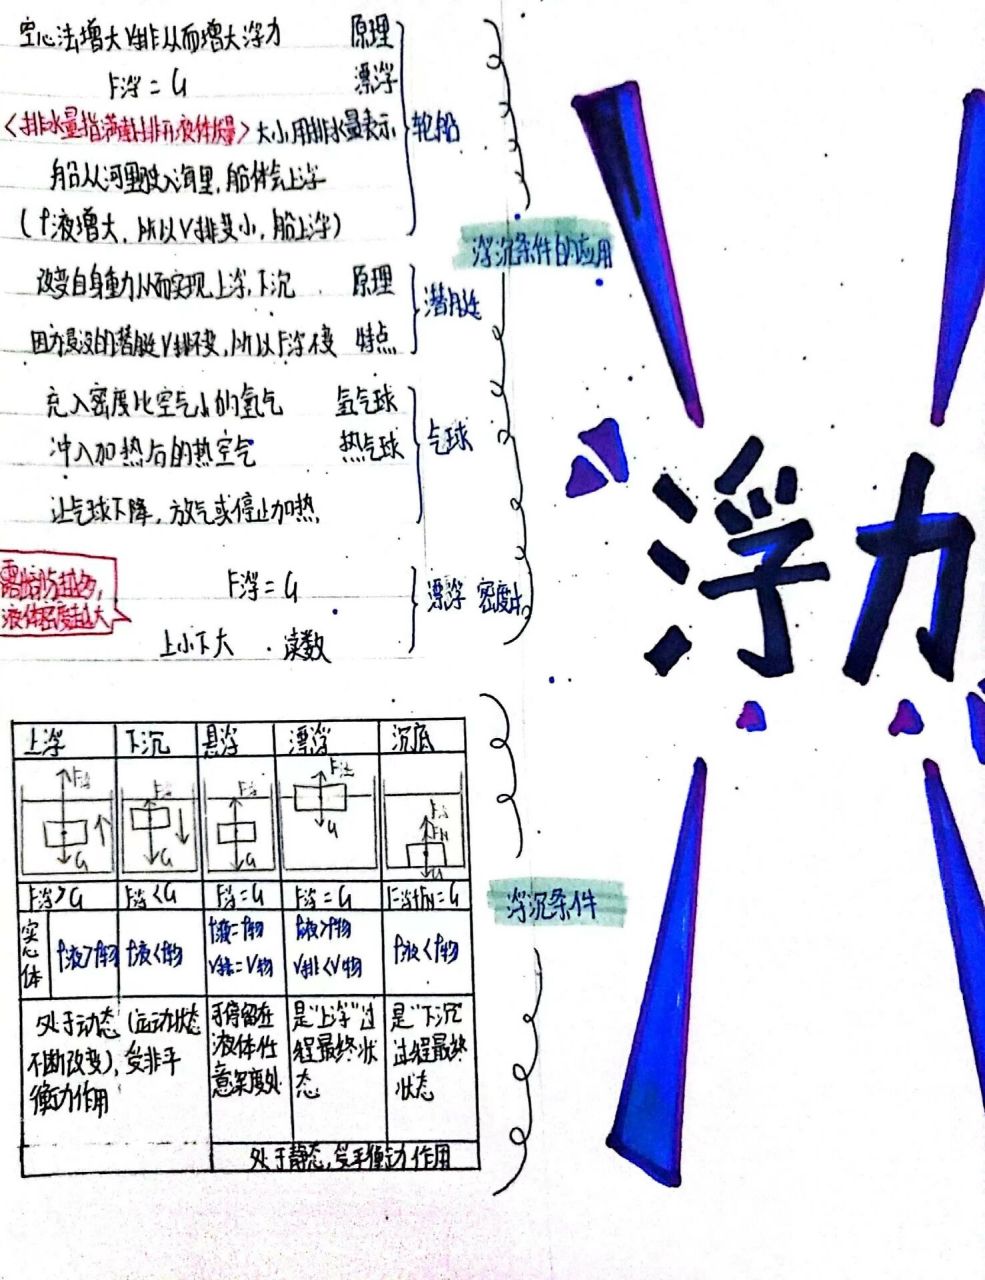 空心法增大V排从而增大浮力 原理
F浮=G 漂浮
<排水量指满载时排开液体质量>大小用排水量表示 轮船
船从河里驶入海里,船体会上浮
(ρ液增大,所以V排变小,船上浮)
浮沉条件的应用
改变自身重力从而实现上浮,下沉 原理
潜水艇
因为浸没的潜艇V排不变,所以F浮不变 特点
充入密度比空气小的氢气 氢气球
冲入加热后的热空气 热气球 气球
让气球下降,放气或停止加热,
液体密度越大
F浮=G 漂浮 密度计
上小下大 · 读数
浮力
上浮 下沉 悬浮 漂浮 沉底
F浮 F浮 F浮 F浮 F浮
FN
G G G G G
F浮>G F浮<G F浮=G F浮=G F浮+FN=G
浮沉条件
实心体 ρ液>ρ物 ρ液<ρ物 ρ液=ρ物 ρ液>ρ物 ρ液<ρ物
V排=V物 V排<V物
处于动态(运动状态 可停留在 是"上浮"过 是"下沉"
不断改变),受非平 液体任 程最终状 过程最终
衡力作用 意深度处 态 状态
处于静态,受平衡力作用